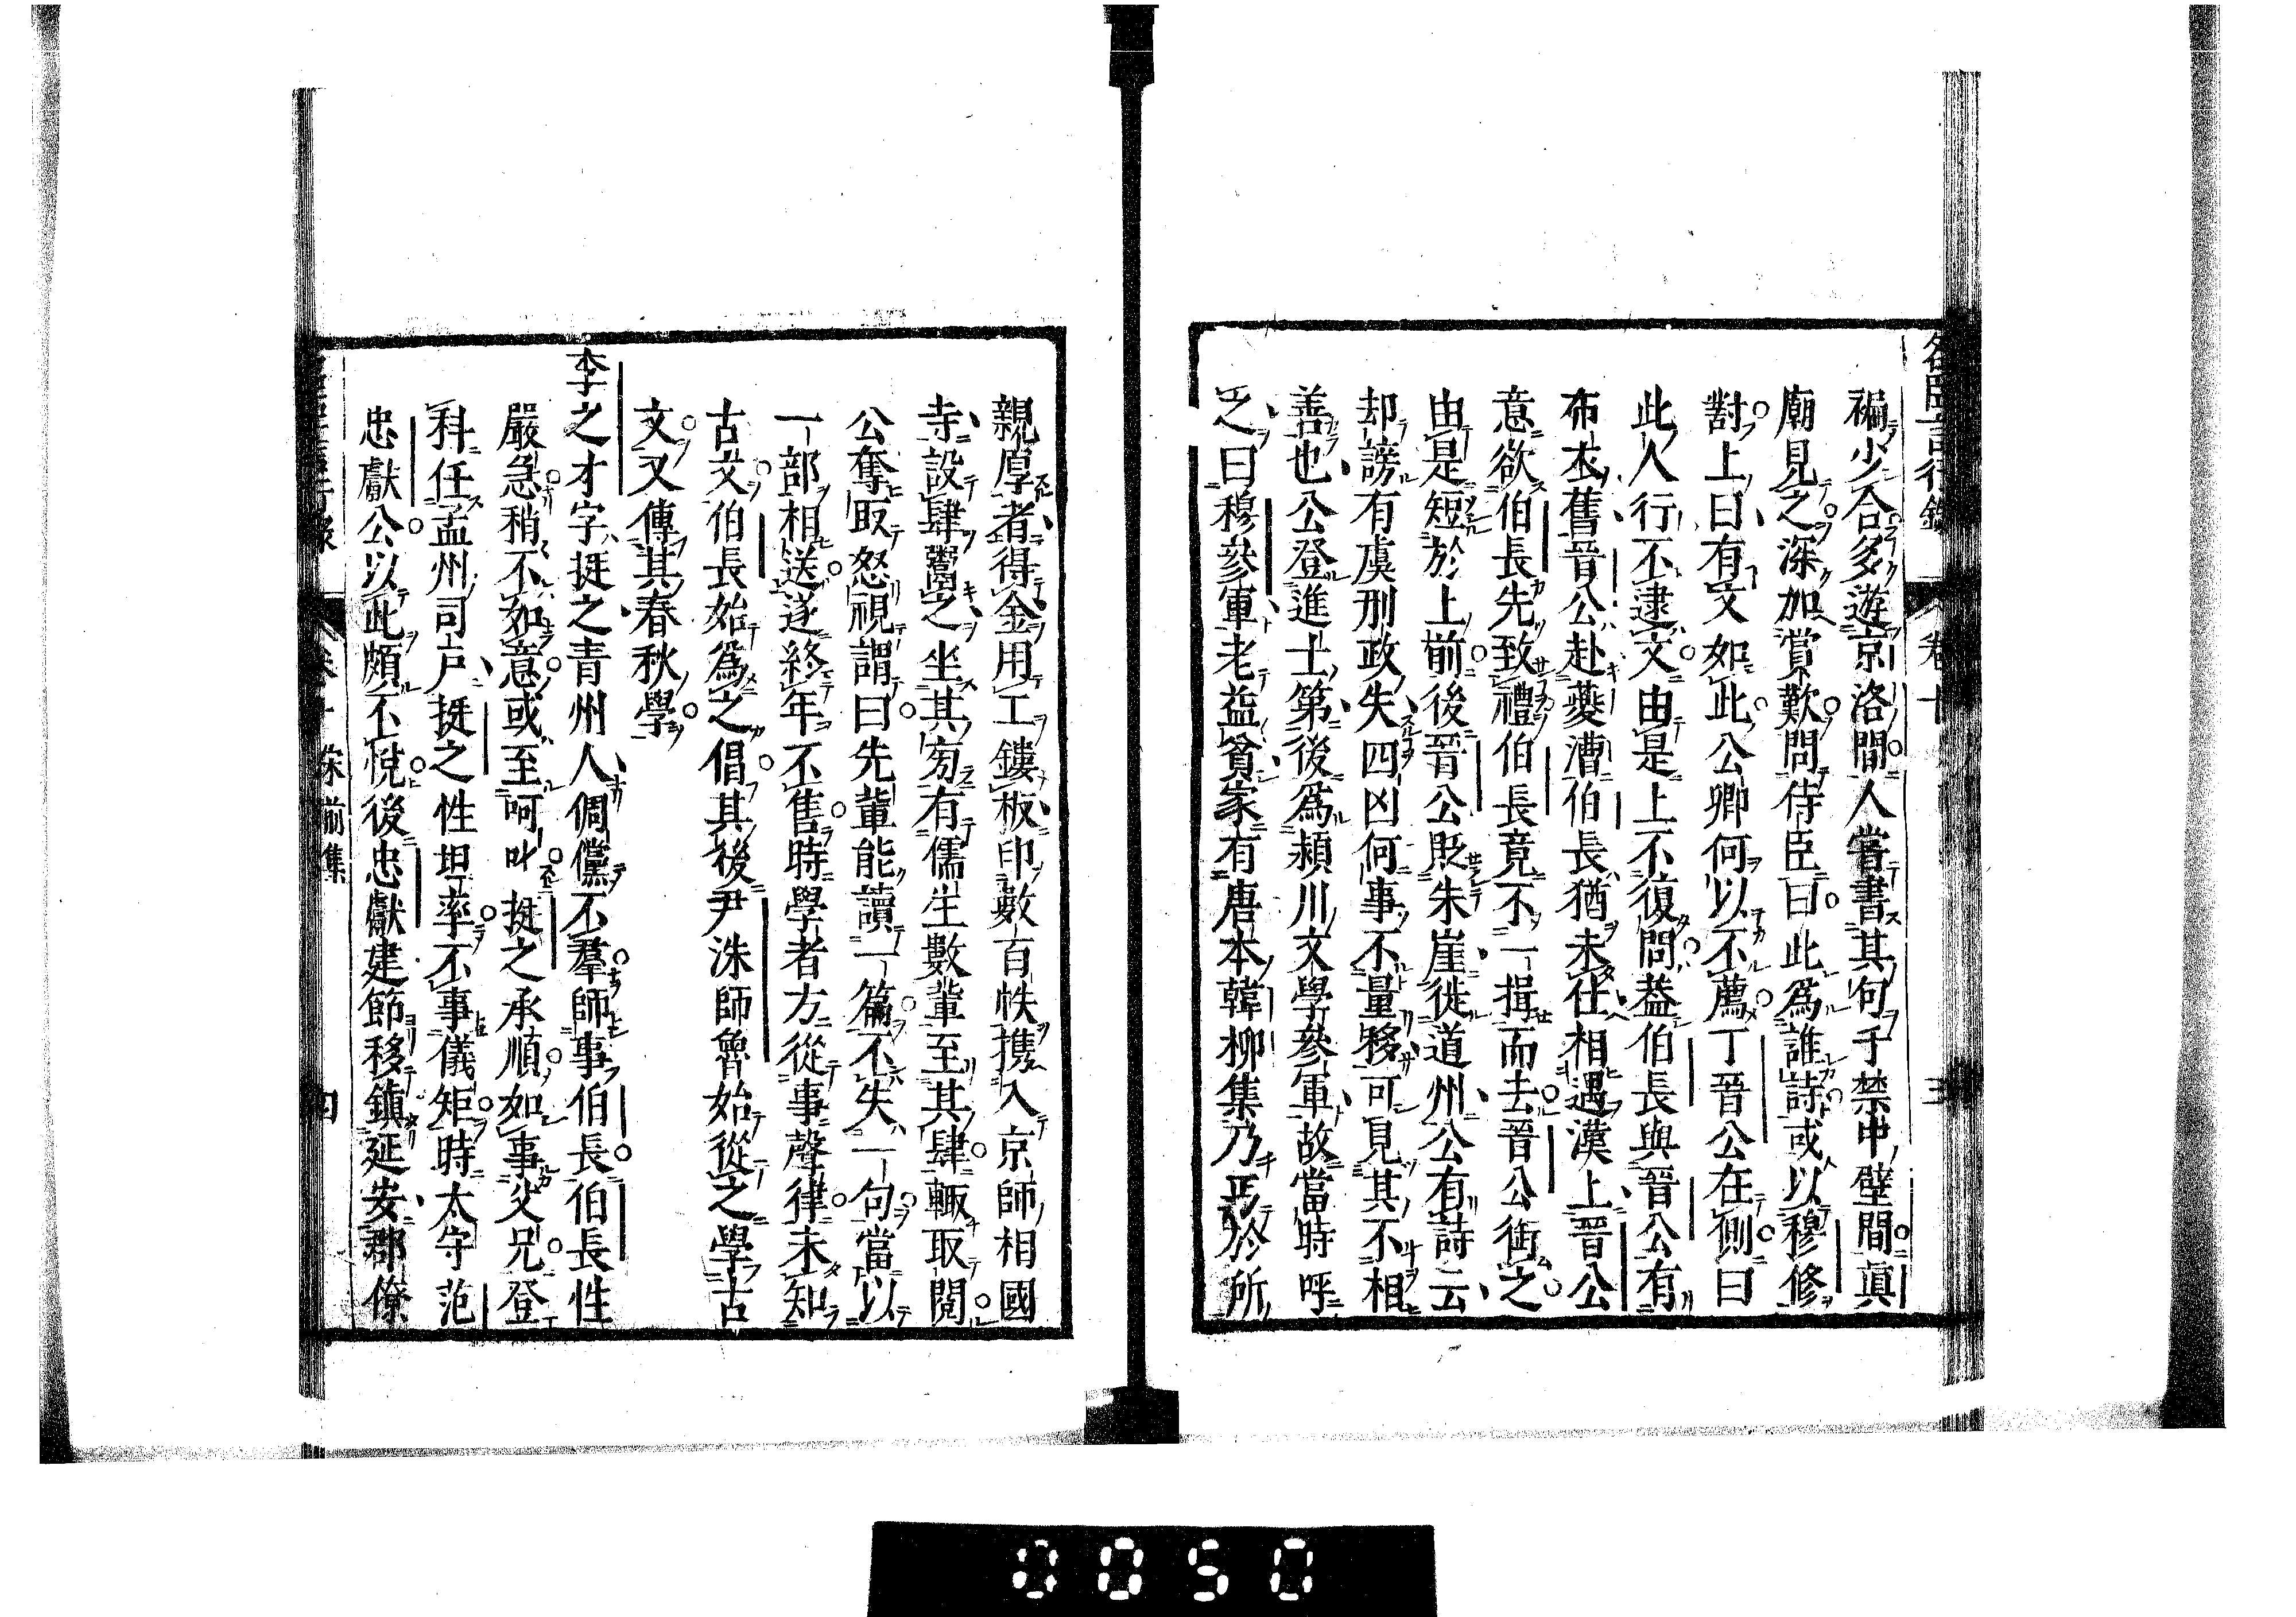 名臣言行錄 卷十 三
褊少合多遊京洛間人嘗書其句于禁中壁間眞
廟見之深加賞歎問侍臣曰此爲誰詩或以穆修
對上曰有文如此公卿何以不薦丁晉公在側曰
此人行不逮文由是上不復問葢伯長與晉公有
布衣舊晉公赴夔漕伯長猶未仕相遇漢上晉公
意欲伯長先致禮伯長竟不一揖而去晉公銜之
由是短於上前後晉公貶朱崖徙道州公有詩云
却謗有虞刑政失四凶何事不量移可見其不相
善也公登進士第後爲潁川文學參軍故當時呼
之曰穆參軍老益貧家有唐本韓柳集乃丐於所
親厚者得金用工鏤板印數百帙攜入京師相國
寺設肆鬻之坐其旁有儒生數輩至其肆輙取閱
公奪取怒視謂曰先輩能讀一篇不失一句當以
一部相送遂終年不售時學者方從事聲律未知
古文伯長始爲之倡其後尹洙師魯始從之學古
文又傳其春秋學
李之才字挺之青州人倜儻不羣師事伯長伯長性
嚴急稍不如意或至呵叱挺之承順如事父兄登
科任孟州司戶挺之性坦率不事儀矩時太守范
忠獻公以此頗不悅後忠獻建節移鎮延安郡僚
卷十 宋前集 四
0050